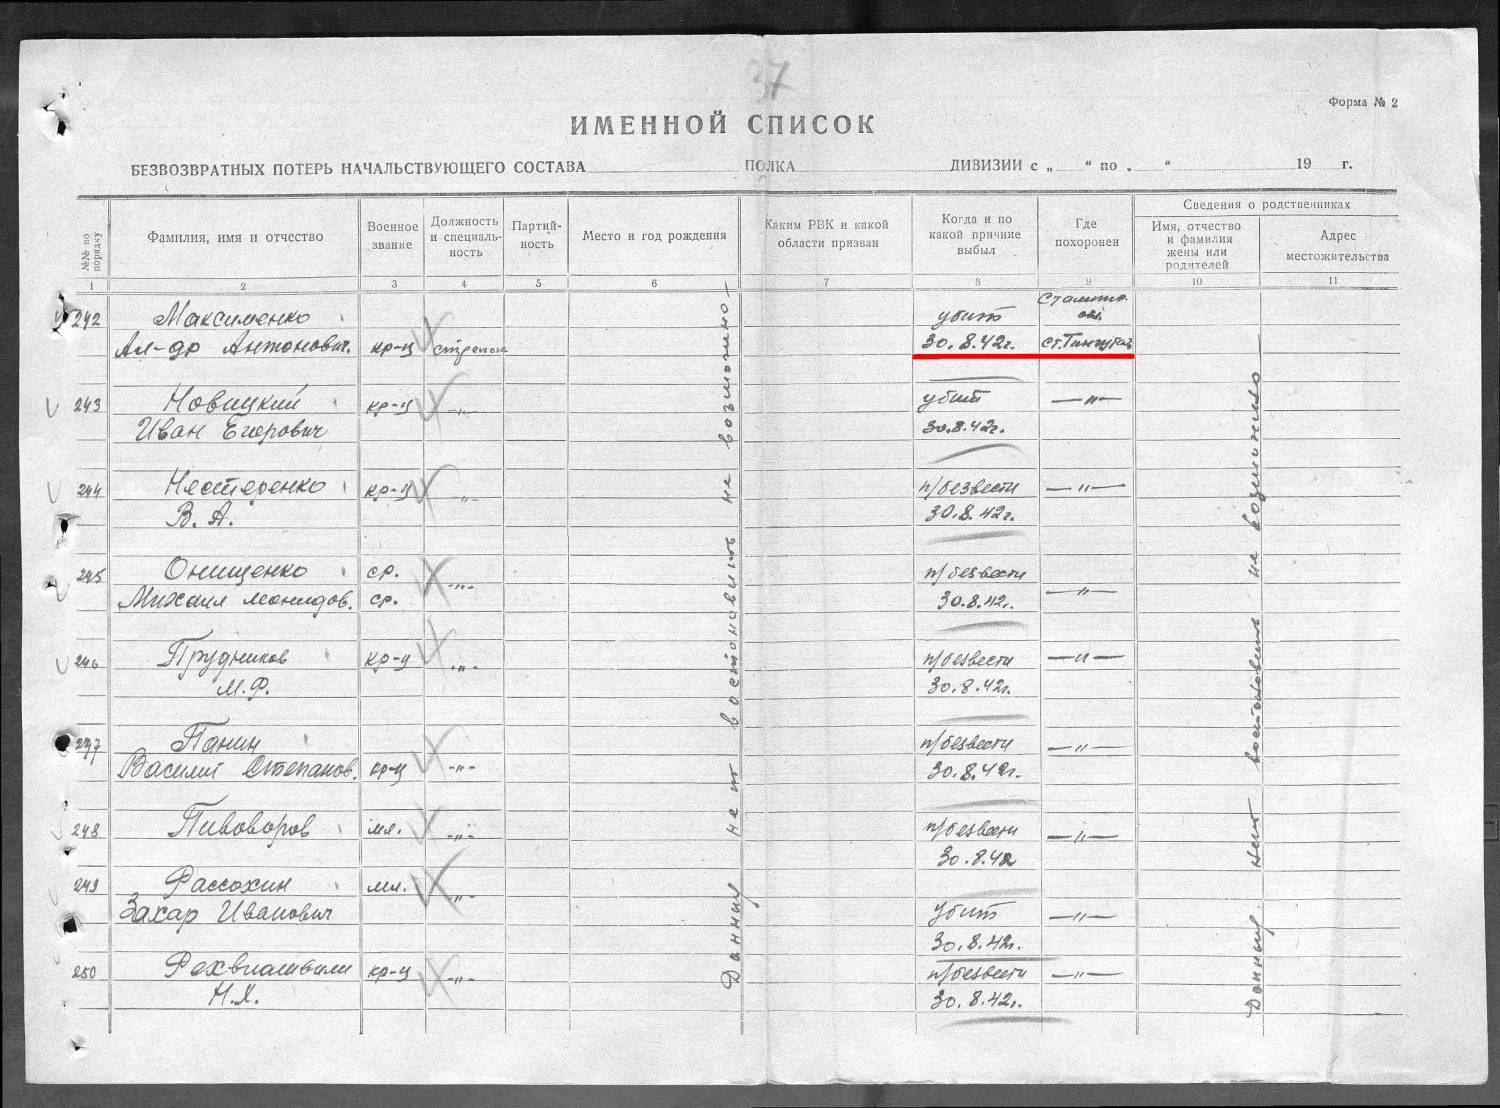 37
Форма № 2
ИМЕННОЙ СПИСОК
БЕЗВОЗВРАТНЫХ ПОТЕРЬ НАЧАЛЬСТВУЮЩЕГО СОСТАВА ПОЛКА ДИВИЗИИ с „ “ по „ “ 19 г.
№№ по порядку
Фамилия, имя и отчество
Военное звание
Должность и специаль- ность
Партий- ность
Место и год рождения
Каким РВК и какой области призван
Когда и по какой причине выбыл
Где похоронен
Сведения о родственниках
Имя, отчество и фамилия жены или родителей
Адрес местожительства
1 2 3 4 5 6 7 8 9 10 11
242 Максименко убит Сталингр. обл.
Ал-др Антонович. кр-ц стрелок 30.8.42г. ст.Тингута
243 Новицкий кр-ц -„- убит —„—
Иван Егорович 30.8.42г.
244 Нестеренко кр-ц -„- п/безвести —„—
В. А. 30.8.42г.
245 Онищенко ср. -„- п/безвести —„—
Михаил Леонидов. ср. 30.8.42г.
246 Прудников кр-ц -„- п/безвести —„—
М.Ф. 30.8.42г.
247 Панин п/безвести —„—
Василий Степанов. кр-ц -„- 30.8.42г.
248 Пивоворов мл. -„- п/безвести —„—
30.8.42
249 Рассохин мл. -„-
Захар Иванович убит —„—
30.8.42г.
250 Рехвиашвили кр-ц -„- п/безвести —„—
Н.Х. 30.8.42г.
Данных нет востоновить не возможно —
Данных нет востоновить не возможно —